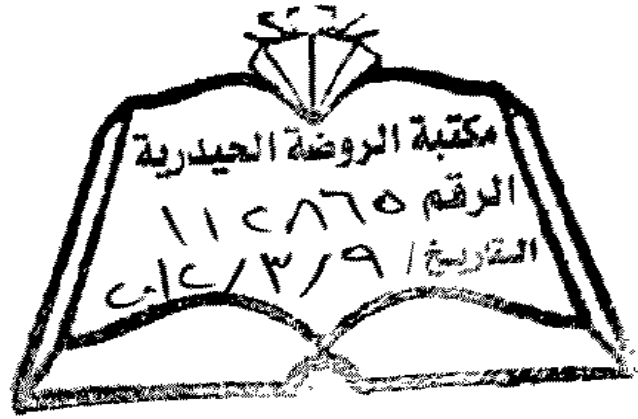 مكتبة الروضة الحيدرية
الرقم ١١٢٨٦٥
التاريخ / ٩ / ٣ / ٢٠١٢